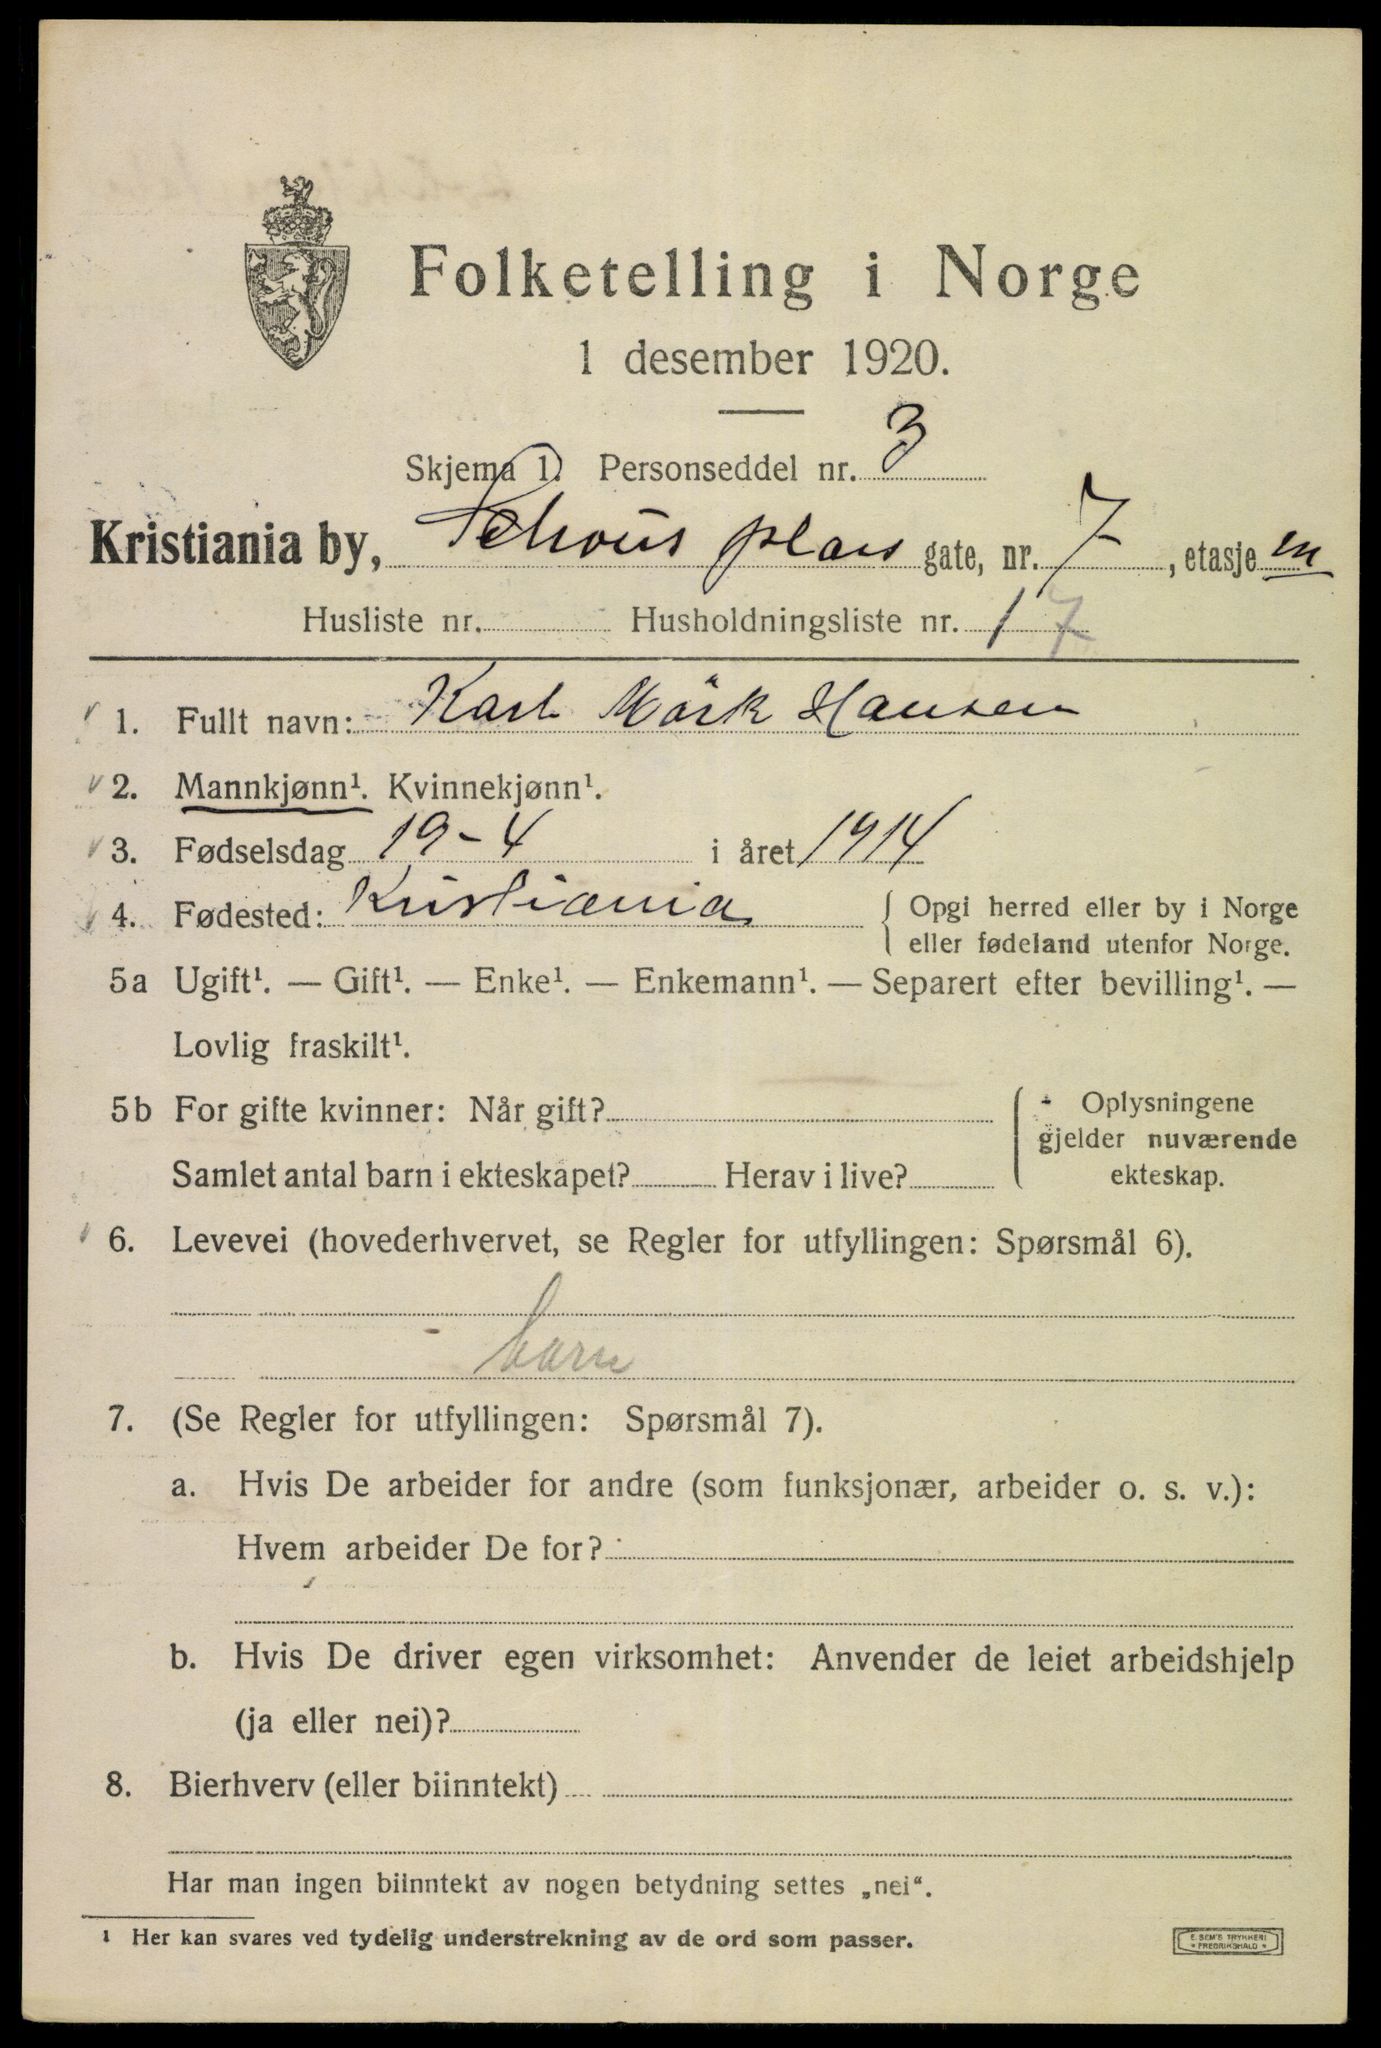 Folketelling i Norge
1 desember 1920.
Skjema 1. Personseddel nr. 3
Kristiania by, Schous plass gate, nr. 7, etasje III
Husliste nr. Husholdningsliste nr. 17
1. Fullt navn: Karl Mörk Hansen
2. Mannkjønn¹. Kvinnekjønn¹.
3. Fødselsdag 19-4 i året 1914
4. Fødested: Kristiania { Opgi herred eller by i Norge
eller fødeland utenfor Norge.
5a Ugift¹. — Gift¹. — Enke¹. — Enkemann¹. — Separert efter bevilling¹. —
Lovlig fraskilt¹.
5b For gifte kvinner: Når gift? { Oplysningene
gjelder nuværende
Samlet antal barn i ekteskapet? Herav i live? ekteskap.
6. Levevei (hovederhvervet, se Regler for utfyllingen: Spørsmål 6).
barn
7. (Se Regler for utfyllingen: Spørsmål 7).
a. Hvis De arbeider for andre (som funksjonær, arbeider o. s. v.):
Hvem arbeider De for?
b. Hvis De driver egen virksomhet: Anvender de leiet arbeidshjelp
(ja eller nei)?
8. Bierhverv (eller biinntekt)
Har man ingen biinntekt av nogen betydning settes „nei“.
¹ Her kan svares ved tydelig understrekning av de ord som passer.
E. SEM'S TRYKKERI
* FREDRIKSHALD *